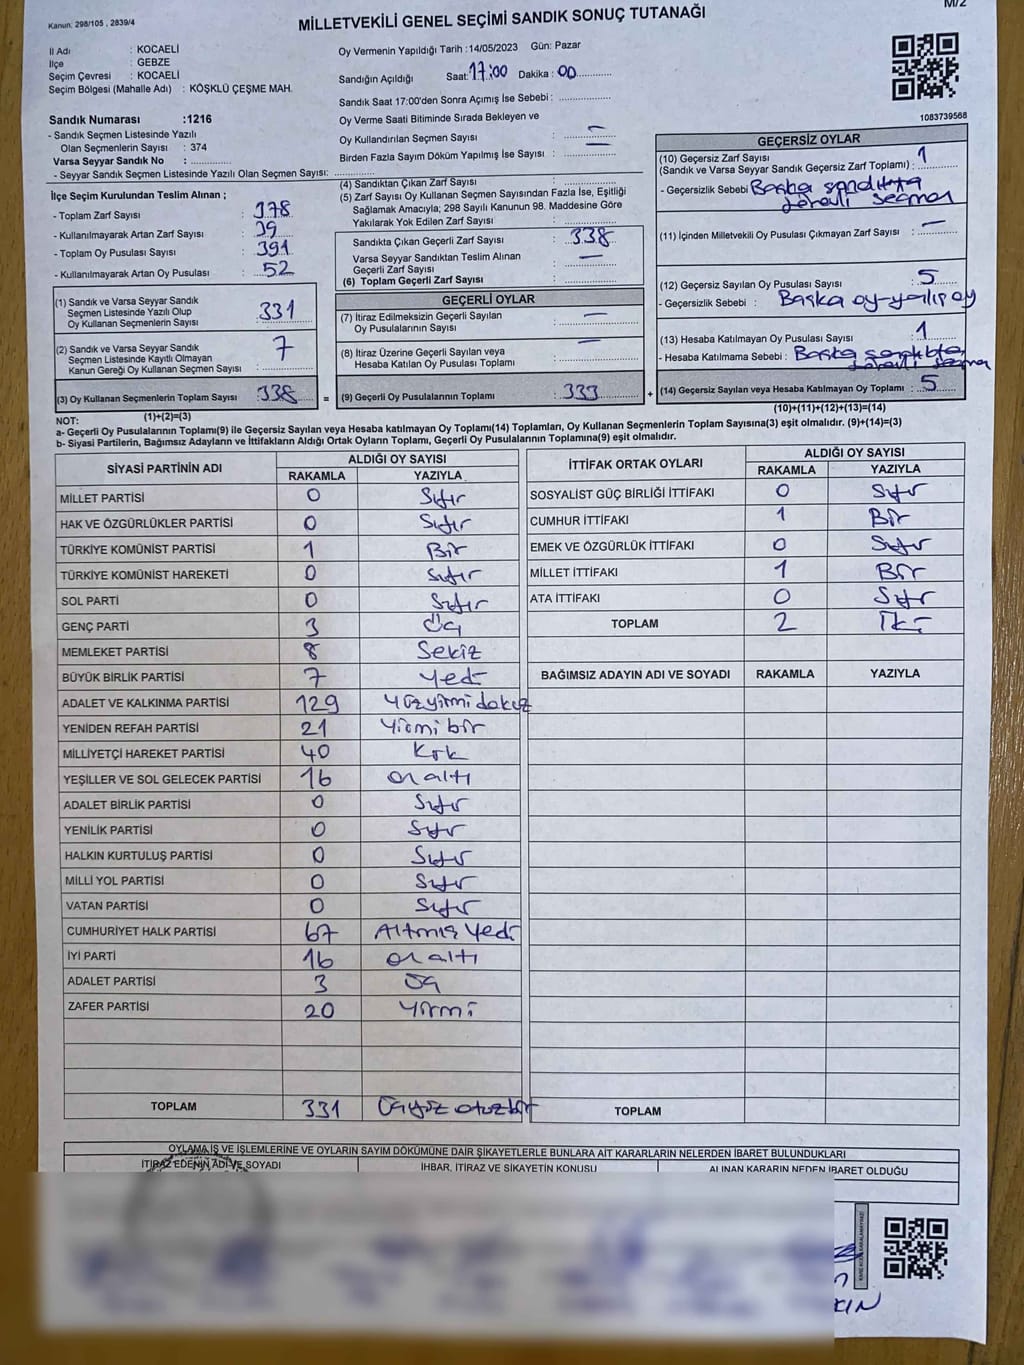 Kanun: 298/105 , 2839/4
M/2
MİLLETVEKİLİ GENEL SEÇİMİ SANDIK SONUÇ TUTANAĞI
İl Adı : KOCAELİ
İlçe : GEBZE
Seçim Çevresi : KOCAELİ
Seçim Bölgesi (Mahalle Adı) : KÖŞKLÜ ÇEŞME MAH.
Sandık Numarası :1216
- Sandık Seçmen Listesinde Yazılı
Olan Seçmenlerin Sayısı : 374
Varsa Seyyar Sandık No : ..............
- Seyyar Sandık Seçmen Listesinde Yazılı Olan Seçmen Sayısı: ..............
Oy Vermenin Yapıldığı Tarih :14/05/2023 Gün: Pazar
Sandığın Açıldığı Saat: 17:00 Dakika : 00
Sandık Saat 17:00'den Sonra Açımış İse Sebebi : ..............
Oy Verme Saati Bitiminde Sırada Bekleyen ve
Oy Kullandırılan Seçmen Sayısı : —
Birden Fazla Sayım Döküm Yapılmış İse Sayısı : —
1083739568
İlçe Seçim Kurulundan Teslim Alınan ;
- Toplam Zarf Sayısı : 378
- Kullanılmayarak Artan Zarf Sayısı : 39
- Toplam Oy Pusulası Sayısı : 391
- Kullanılmayarak Artan Oy Pusulası : 52
(1) Sandık ve Varsa Seyyar Sandık
Seçmen Listesinde Yazılı Olup
Oy Kullanan Seçmenlerin Sayısı : 331
(2) Sandık ve Varsa Seyyar Sandık
Seçmen Listesinde Kayıtlı Olmayan
Kanun Gereği Oy Kullanan Seçmen Sayısı : 7
(3) Oy Kullanan Seçmenlerin Toplam Sayısı : 338 =
(1)+(2)=(3)
(4) Sandıktan Çıkan Zarf Sayısı : ..............
(5) Zarf Sayısı Oy Kullanan Seçmen Sayısından Fazla İse, Eşitliği
Sağlamak Amacıyla; 298 Sayılı Kanunun 98. Maddesine Göre
Yakılarak Yok Edilen Zarf Sayısı : ..............
Sandıkta Çıkan Geçerli Zarf Sayısı : 338
Varsa Seyyar Sandıktan Teslim Alınan
Geçerli Zarf Sayısı : —
(6) Toplam Geçerli Zarf Sayısı : ..............
GEÇERLİ OYLAR
(7) İtiraz Edilmeksizin Geçerli Sayılan
Oy Pusulalarının Sayısı : —
(8) İtiraz Üzerine Geçerli Sayılan veya
Hesaba Katılan Oy Pusulası Toplamı : —
(9) Geçerli Oy Pusulalarının Toplamı : 333 +
GEÇERSİZ OYLAR
(10) Geçersiz Zarf Sayısı
(Sandık ve Varsa Seyyar Sandık Geçersiz Zarf Toplamı) : 1
- Geçersizlik Sebebi : Başka sandıkta
görevli seçmen
(11) İçinden Milletvekili Oy Pusulası Çıkmayan Zarf Sayısı : —
(12) Geçersiz Sayılan Oy Pusulası Sayısı : 5
- Geçersizlik Sebebi : Başka oy
(13) Hesaba Katılmayan Oy Pusulası Sayısı : 1
- Hesaba Katılmama Sebebi : Başka sandıkta
görevli seçmen
(14) Geçersiz Sayılan veya Hesaba Katılmayan Oy Toplamı : 5
(10)+(11)+(12)+(13)=(14)
NOT:
a- Geçerli Oy Pusulalarının Toplamı(9) ile Geçersiz Sayılan veya Hesaba katılmayan Oy Toplamı(14) Toplamları, Oy Kullanan Seçmenlerin Toplam Sayısına(3) eşit olmalıdır. (9)+(14)=(3)
b- Siyasi Partilerin, Bağımsız Adayların ve İttifakların Aldığı Ortak Oyların Toplamı, Geçerli Oy Pusulalarının Toplamına(9) eşit olmalıdır.
SİYASİ PARTİNİN ADI ALDIĞI OY SAYISI
RAKAMLA YAZIYLA
MİLLET PARTİSİ 0 Sıfır
HAK VE ÖZGÜRLÜKLER PARTİSİ 0 Sıfır
TÜRKİYE KOMÜNİST PARTİSİ 1 Bir
TÜRKİYE KOMÜNİST HAREKETİ 0 Sıfır
SOL PARTİ 0 Sıfır
GENÇ PARTİ 3 Üç
MEMLEKET PARTİSİ 8 Sekiz
BÜYÜK BİRLİK PARTİSİ 7 Yedi
ADALET VE KALKINMA PARTİSİ 129 Yüzyirmidokuz
YENİDEN REFAH PARTİSİ 21 Yirmibir
MİLLİYETÇİ HAREKET PARTİSİ 40 Kırk
YEŞİLLER VE SOL GELECEK PARTİSİ 16 onaltı
ADALET BİRLİK PARTİSİ 0 Sıfır
YENİLİK PARTİSİ 0 Sıfır
HALKIN KURTULUŞ PARTİSİ 0 Sıfır
MİLLİ YOL PARTİSİ 0 Sıfır
VATAN PARTİSİ 0 Sıfır
CUMHURİYET HALK PARTİSİ 67 Altmış Yedi
İYİ PARTİ 16 onaltı
ADALET PARTİSİ 3 üç
ZAFER PARTİSİ 20 Yirmi
TOPLAM 331 Üçyüz otuzbir
İTTİFAK ORTAK OYLARI ALDIĞI OY SAYISI
RAKAMLA YAZIYLA
SOSYALİST GÜÇ BİRLİĞİ İTTİFAKI 0 Sıfır
CUMHUR İTTİFAKI 1 Bir
EMEK VE ÖZGÜRLÜK İTTİFAKI 0 Sıfır
MİLLET İTTİFAKI 1 Bir
ATA İTTİFAKI 0 Sıfır
TOPLAM 2 İki
BAĞIMSIZ ADAYIN ADI VE SOYADI RAKAMLA YAZIYLA
TOPLAM
OYLAMA İŞ VE İŞLEMLERİNE VE OYLARIN SAYIM DÖKÜMÜNE DAİR ŞİKAYETLERLE BUNLARA AİT KARARLARIN NELERDEN İBARET BULUNDUKLARI
İTİRAZ EDENİN ADI VE SOYADI İHBAR, İTİRAZ VE ŞİKAYETİN KONUSU ALINAN KARARIN NEDEN İBARET OLDUĞU